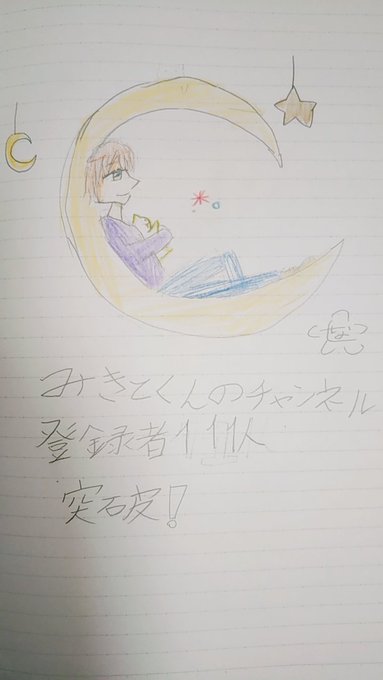 みきとくんのチャンネル
登録者111人
突破!